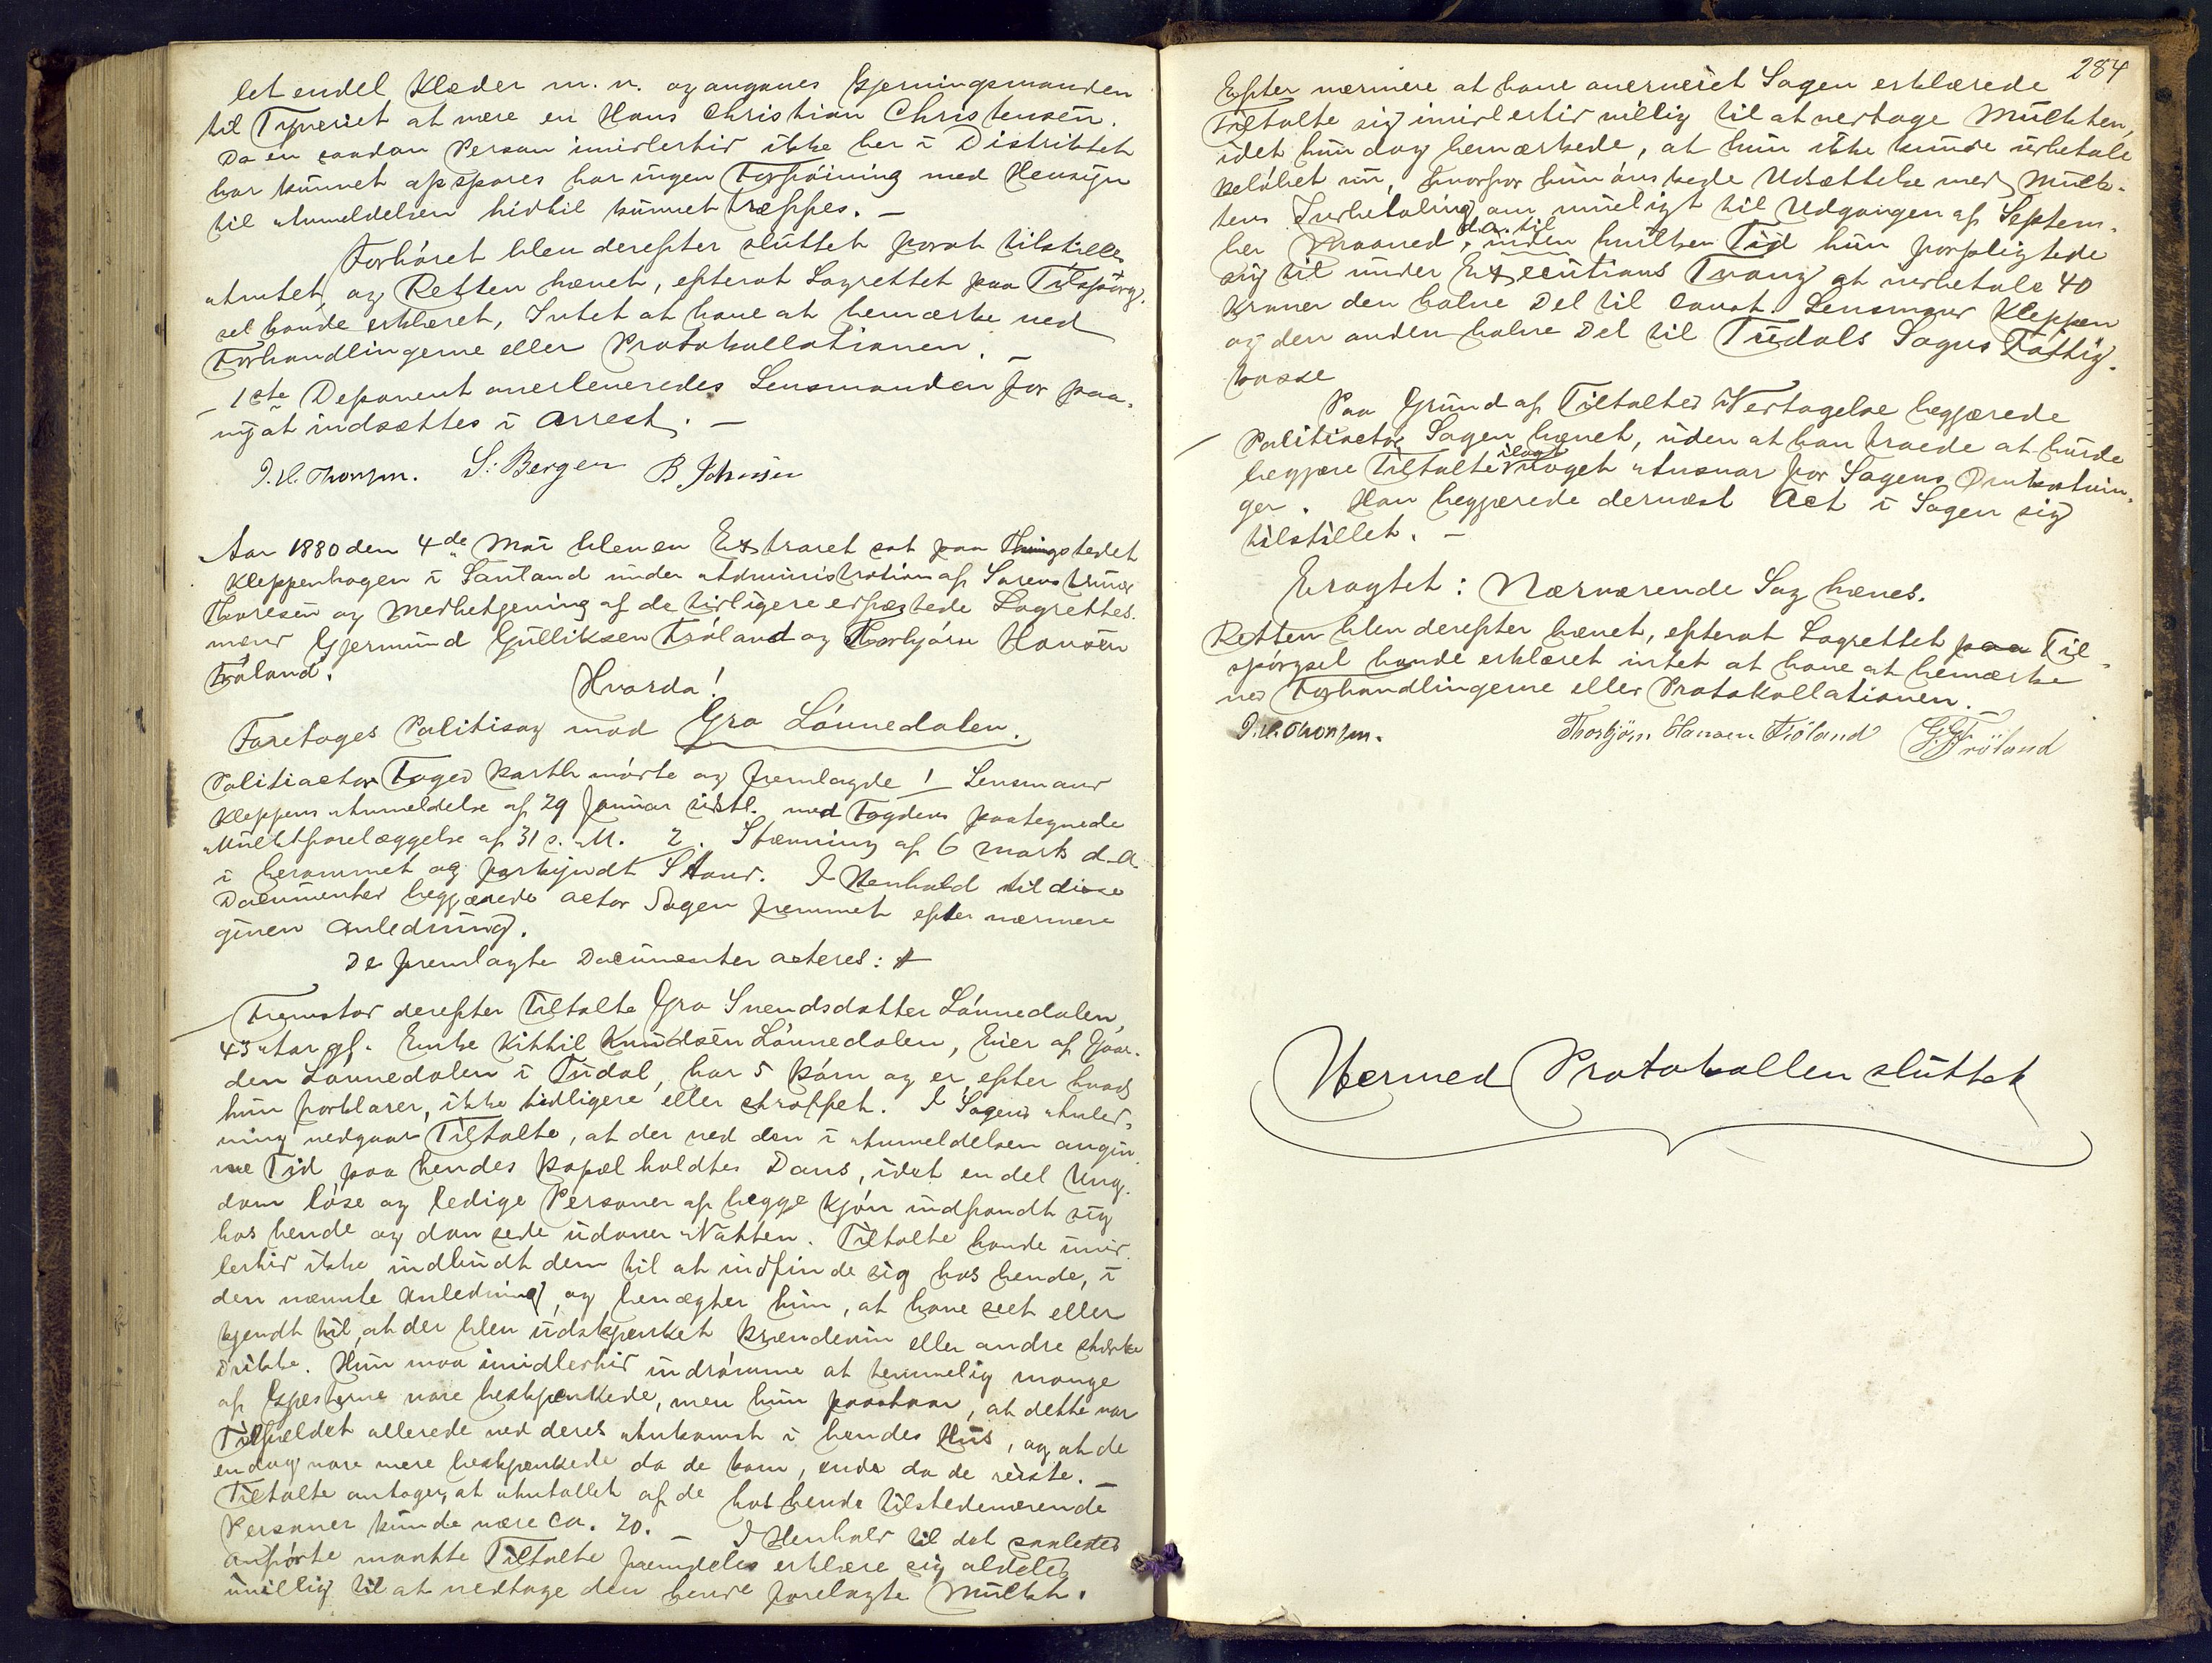 let endel Klæder m. v. og angaves Gjerningsmanden
til Tyveriet at være en Hans Christian Christensen.
Da en saadan Person imidlertid ikke her i Distriktet
har kunnet opspores har ingen Forføining med Hensyn
til Anmeldelsen hidtil kunnet træffes. –
Forhøret blev derefter sluttet forat tilstilles
Amtet, og Retten hævet, efterat Lagrettet paa Tilspørg-
sel havde erklæret, Intet at have at bemærke ved
Forhandlingerne eller Protokollationen. –
– 1ste Deponent overleveredes Lensmanden for paa-
nyat indsættes i Arrest. –
J. H. Thomsen. S: Bergen B Johnsen
Aar 1880 den 4de Mai blev en Extraret sat paa Thingstedet
Kleppenhagen i Sauland under Administration af Sorenskriver
Thoresen og Medbetjening af de tidligere edfæstede Lagrettes-
mænd Gjermund Gulliksen Frøland og Thorbjørn Hansen
Frøland.
Hvorda!
Foretoges Politisag mod Gro Lønnedalen.
Politiactor Foged Barth mødte og fremlagde 1 Lensmand
Kleppens Anmeldelse af 29 Januar sidstl. med Fogdens paategnede
Mulktforelæggelse af 31 s. M. 2. Stævning af 6 Marts d. A.
i berammet og forkyndt Stand. I Henhold til disse
Documenter begjærede Actor Sagen fremmet efter nærmere
given Anledning.
De fremlagte Documenter acteres:
Fremstod derefter Tiltalte Gro Svendsdatter Lønnedalen,
43 Aar gl. Enke Kittil Knudsen Lønnedalen, Eier af Gaar-
den Lønnedalen i Tudal, har 5 Børn og er, efter hvad
hun forklarer, ikke tidligere eller straffet. I Sagens Anled-
ning vedgaar Tiltalte, at der ved den i Anmeldelsen angiv-
ne Tid paa hendes Bopæl holdtes Dans, idet en del Ung-
dom løse og ledige Personer af begge Kjøn indfandt sig
hos hende og dansede udover Natten. Tiltalte havde imid-
lertid ikke indbudt dem til at indfinde sig hos hende, i
den nævnte Anledning, og benægter hun, at have seet eller
kjendt til, at der blev udskjænket Brændeviin eller andre stærke
Drikke. Hun maa imidlertid indrømme at temmelig mange
af Gjæsterne vare beskjænkede, men hun paastaar, at dette var
Tilfældet allerede ved deres Ankomst i hendes Hus, og at de
endog vare mere beskjænkede da de kom, end da de reiste. –
Tiltalte antager, at Antallet af de hos hende tilstedeværende
Personer kunde være ca. 20. – I Henhold til det saaledes
anførte maatte Tiltalte fremdeles erklære sig aldeles
uvillig til at vedtage den hende forelagte Mulkt.
284
Efter nærmere at have overveiet Sagen erklærede
Tiltalte sig imidlertid villig til at vedtage Mulkten,
idet hun dog bemærkede, at hun ikke kunde udbetale
Beløbet nu, hvorfor hun ønskede Udsættelse med Mulk-
tens Indbetaling om mueligt til Udgangen af Septem-
ber Maaned d. A. til, inden hvilken Tid hun forpligtede
sig til under Executions Tvang at indbetale 40
Kroner den halve Del til const. Lensmand Kleppen
og den anden halve Del til Tudals Sogns Fattig-
kasse
Paa Grund af Tiltaltes Vedtagelse begjærede
Politiactor Sagen hævet, uden at han troede at burde
begjære Tiltalte ilagt noget Ansvar for Sagens Omkostnin-
ger. Han begjærede dernæst Act i Sagen sig
tilstillet. –
Eragtet: Nærværende Sag hæves.
Retten blev derefter hævet, efterat Lagrettet paa Til-
spørgsel havde erklæret intet at have at bemærke
ved Forhandlingerne eller Protokollationen. –
J. H. Thomsen. Thorbjørn Hansen Frøland G. G. Frøland
Hermed Protokollen sluttet